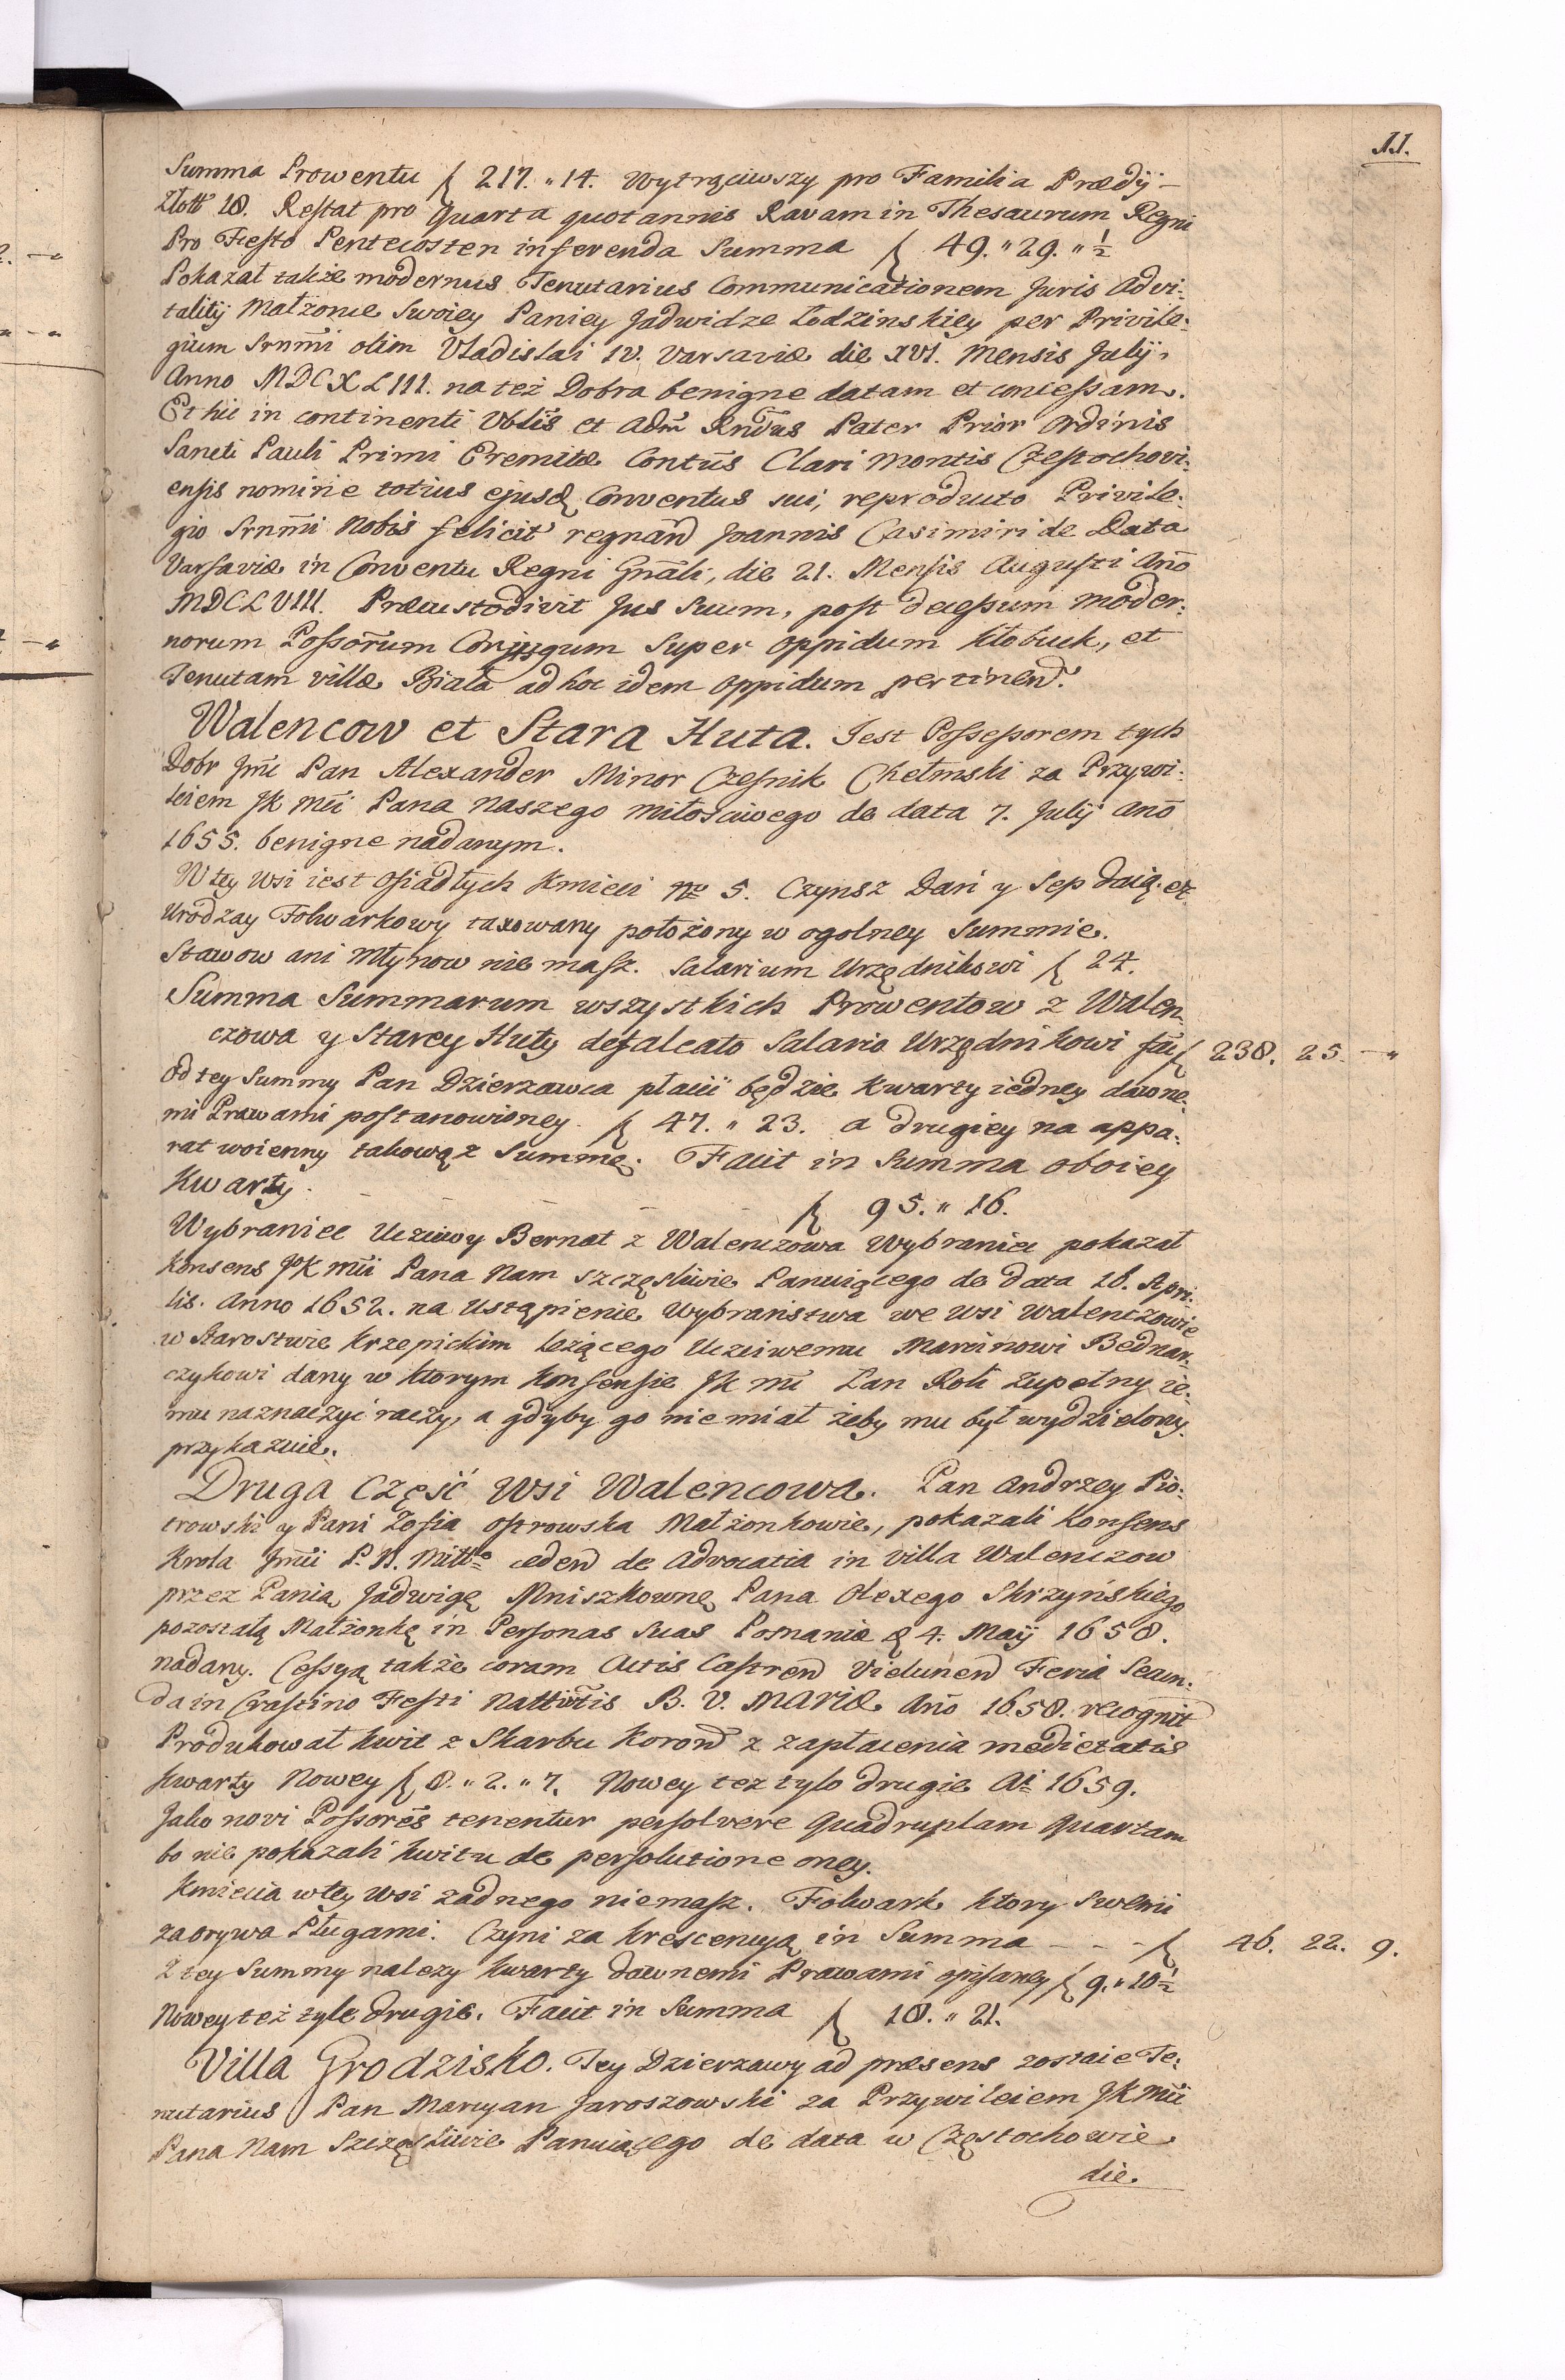 11.
Summa Prowentu ƒ 217. " 14. Wytrąciwszy pro Familia Prædij –
Złott 18. Restat pro Quarta quotannis Ravam in Thesaurum Regni
Pro Festo Pentecosten inferenda Summa ƒ 49. " 29. " ½
Pokazał także modernus Tenutarius Communicationem Juris Advi-
talitij Małżonce Swoiey Paniey Jadwidze Łodzinskiey per Privile-
gium Srnm̃i olim Vladislai IV. Varsaviæ die XVI. Mensis Julij,
Anno MDCXLIII. na też Dobra benigne datam et concessam.
Et hic in continenti Vblis et Adm̃ Rndus Pater Prior Ordinis
Sancti Pauli Primi Eremitæ Contũs Clari Montis Częstochovi-
ensis nomine totius ejusd Conventus sui, reproducto Privile-
gio Srnm̃i Nobis felicit regnand Joannis Casimiri de Data
Varsaviæ in Conventu Regni Gnãli, die 21. Mensis Augusti Anõ
MDCLVIII. Præcustodivit Jus Suum, post decessum moder-
norum Possorum Conjugum Super Oppidum Kłobuck, et
Tenutam villæ Biała ad hoc idem Oppidum pertinend.
Walencow et Stara Huta. Jest Possessorem tych
Dobr Jmc Pan Alexander Minor Czesnik Chełmski za Przywi-
leiem JK Mci Pana Naszego miłosciwego de data 7. Julij Anõ
1655. benigne nadanym.
W tey Wsi iest Osiadłych Kmieci No 5. Czynsz Dań y Sep daią. et
Urodzay Folwarkowy taxowany położony w ogolney Summie.
Stawow ani Młynow nie masz. Salarium Urzędnikowi ƒ 24.
Summa Summarum wszystkich Prowentow z Walen-
czowa y Starey Huty defalcato Salario Urzędnikowi fac ƒ 238. 25. –"
Od tey Summy Pan Dzierzawca płacić będzie Kwarty iedney dawne-
mi Prawami postanowioney. ƒ 47. " 23. a drugiey na appa-
rat woienny takowąż Summę. Facit in Summa oboiey
Kwarty. – – – ƒ 95. " 16.
Wybraniec Uczciwy Bernat z Walenczowa Wybraniec pokazał
Konsens JK mci Pana Nam szczęsliwie Panuiącego de Data 18. Apri-
lis. Anno 1652. na Ustąpienie Wybraństwa we Wsi Walenczowie
w Starostwie Krzepickim leżącego Uczciwemu Marcinowi Bednar-
czykowi dany w ktorym Konsensie JK mć Łan Roli zupełny ie-
mu naznaczyć raczy, a gdyby go nie miał żeby mu był wydzielony
przykazuie.
Druga Część Wsi Walencowa. Pan Andrzey Pio-
trowski y Pani Zofia Ostrowska Małżonkowie, pokazali Konsens
Krola Jmci P. N. Miłłgo cedend de Advocatia in Villa Walenczow
przez Panią Jadwigę Mniszkownę Pana Olexego Skrzyńskiego
pozostałą Małżonkę in Personas Suas Posnaniæ d 4. Maij 1658.
nadany. Cessyą także coram Actis Castrend Vielunend Feria Secun-
da in Crastino Festi Nattivtis B. V. Mariæ Anõ 1658. recognit
Produkował Kwit z Skarbu Korond z zapłacenia medietatis
Kwarty Nowey ƒ 8. " 2. " 7. Nowey tez tylo drugie Ai 1659.
Jako novi Possores tenentur persolvere Quadruplam Quartam
bo nie pokazali Kwitu de persolutione oney.
Kmiecia w tey Wsi żadnego niemasz. Folwark ktory Swemi
zaorywa Pługami. Czyni za krescencyą in Summa – – – ƒ 46. 22. 9.
Z tey Summy nalezy Kwarty dawnemi Prawami opisaney ƒ 9. " 10 ½
Nowey też tyle drugie. Facit in Summa ƒ 18. " 21.
Villa Grodzisko. Tey Dzierzawy ad præsens zostaie Te-
nutarius Pan Maryan Jaroszowski za Przywileiem JK Mci
Pana Nam Szczęsliwie Panuiącego de data w Częstochowie
die.